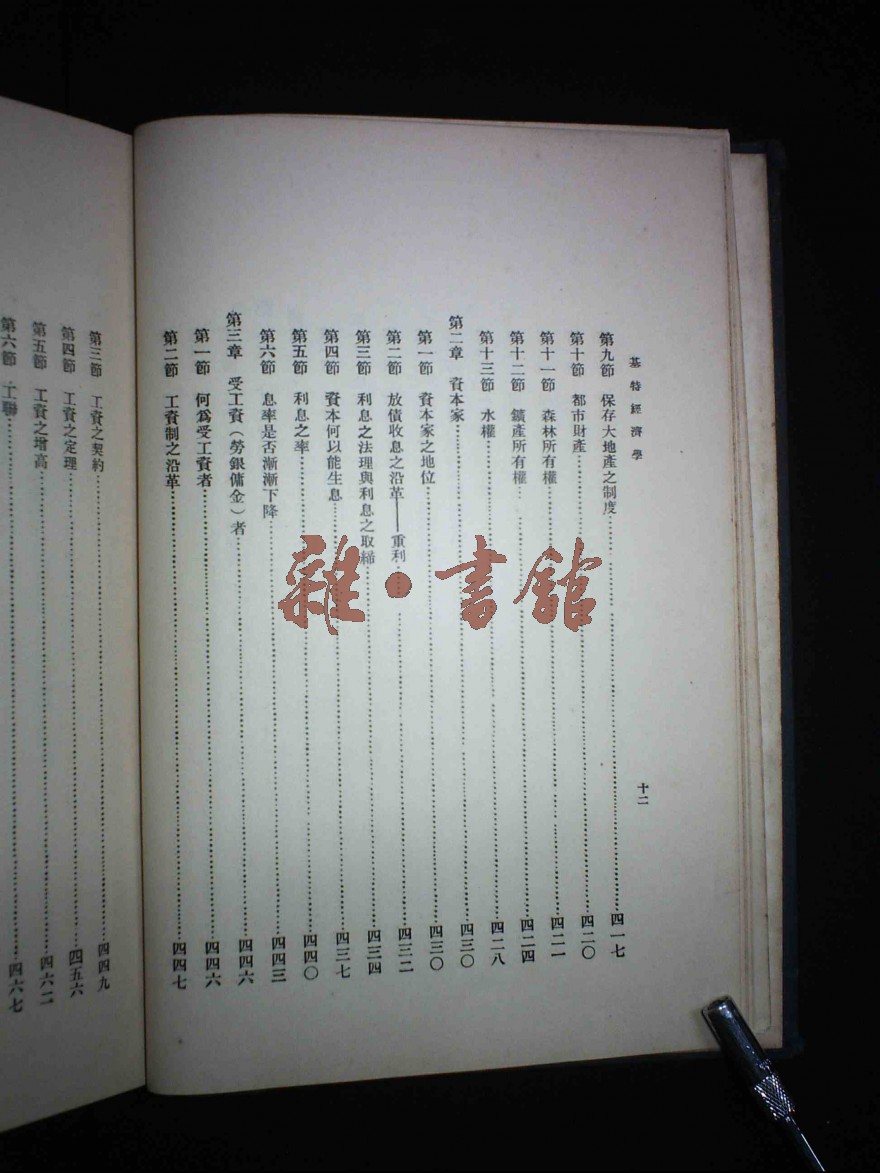 基特經濟學
十二
第九節 保存大地產之制度……四一七
第十節 都市財產……四二〇
第十一節 森林所有權……四二一
第十二節 鑛產所有權……四二四
第十三節 水權……四二八
第二章 資本家……四三〇
第一節 資本家之地位……四三〇
第二節 放債收息之沿革——重利……四三二
第三節 利息之法理與利息之取締……四三四
第四節 資本何以能生息……四三七
第五節 利息之率……四四〇
第六節 息率是否漸漸下降……四四三
第三章 受工資(勞銀傭金)者……四四六
第一節 何爲受工資者……四四六
第二節 工資制之沿革……四四七
第三節 工資之契約……四四九
第四節 工資之定理……四五六
第五節 工資之增高……四六二
第六節 工聯……四六七
雜·書館